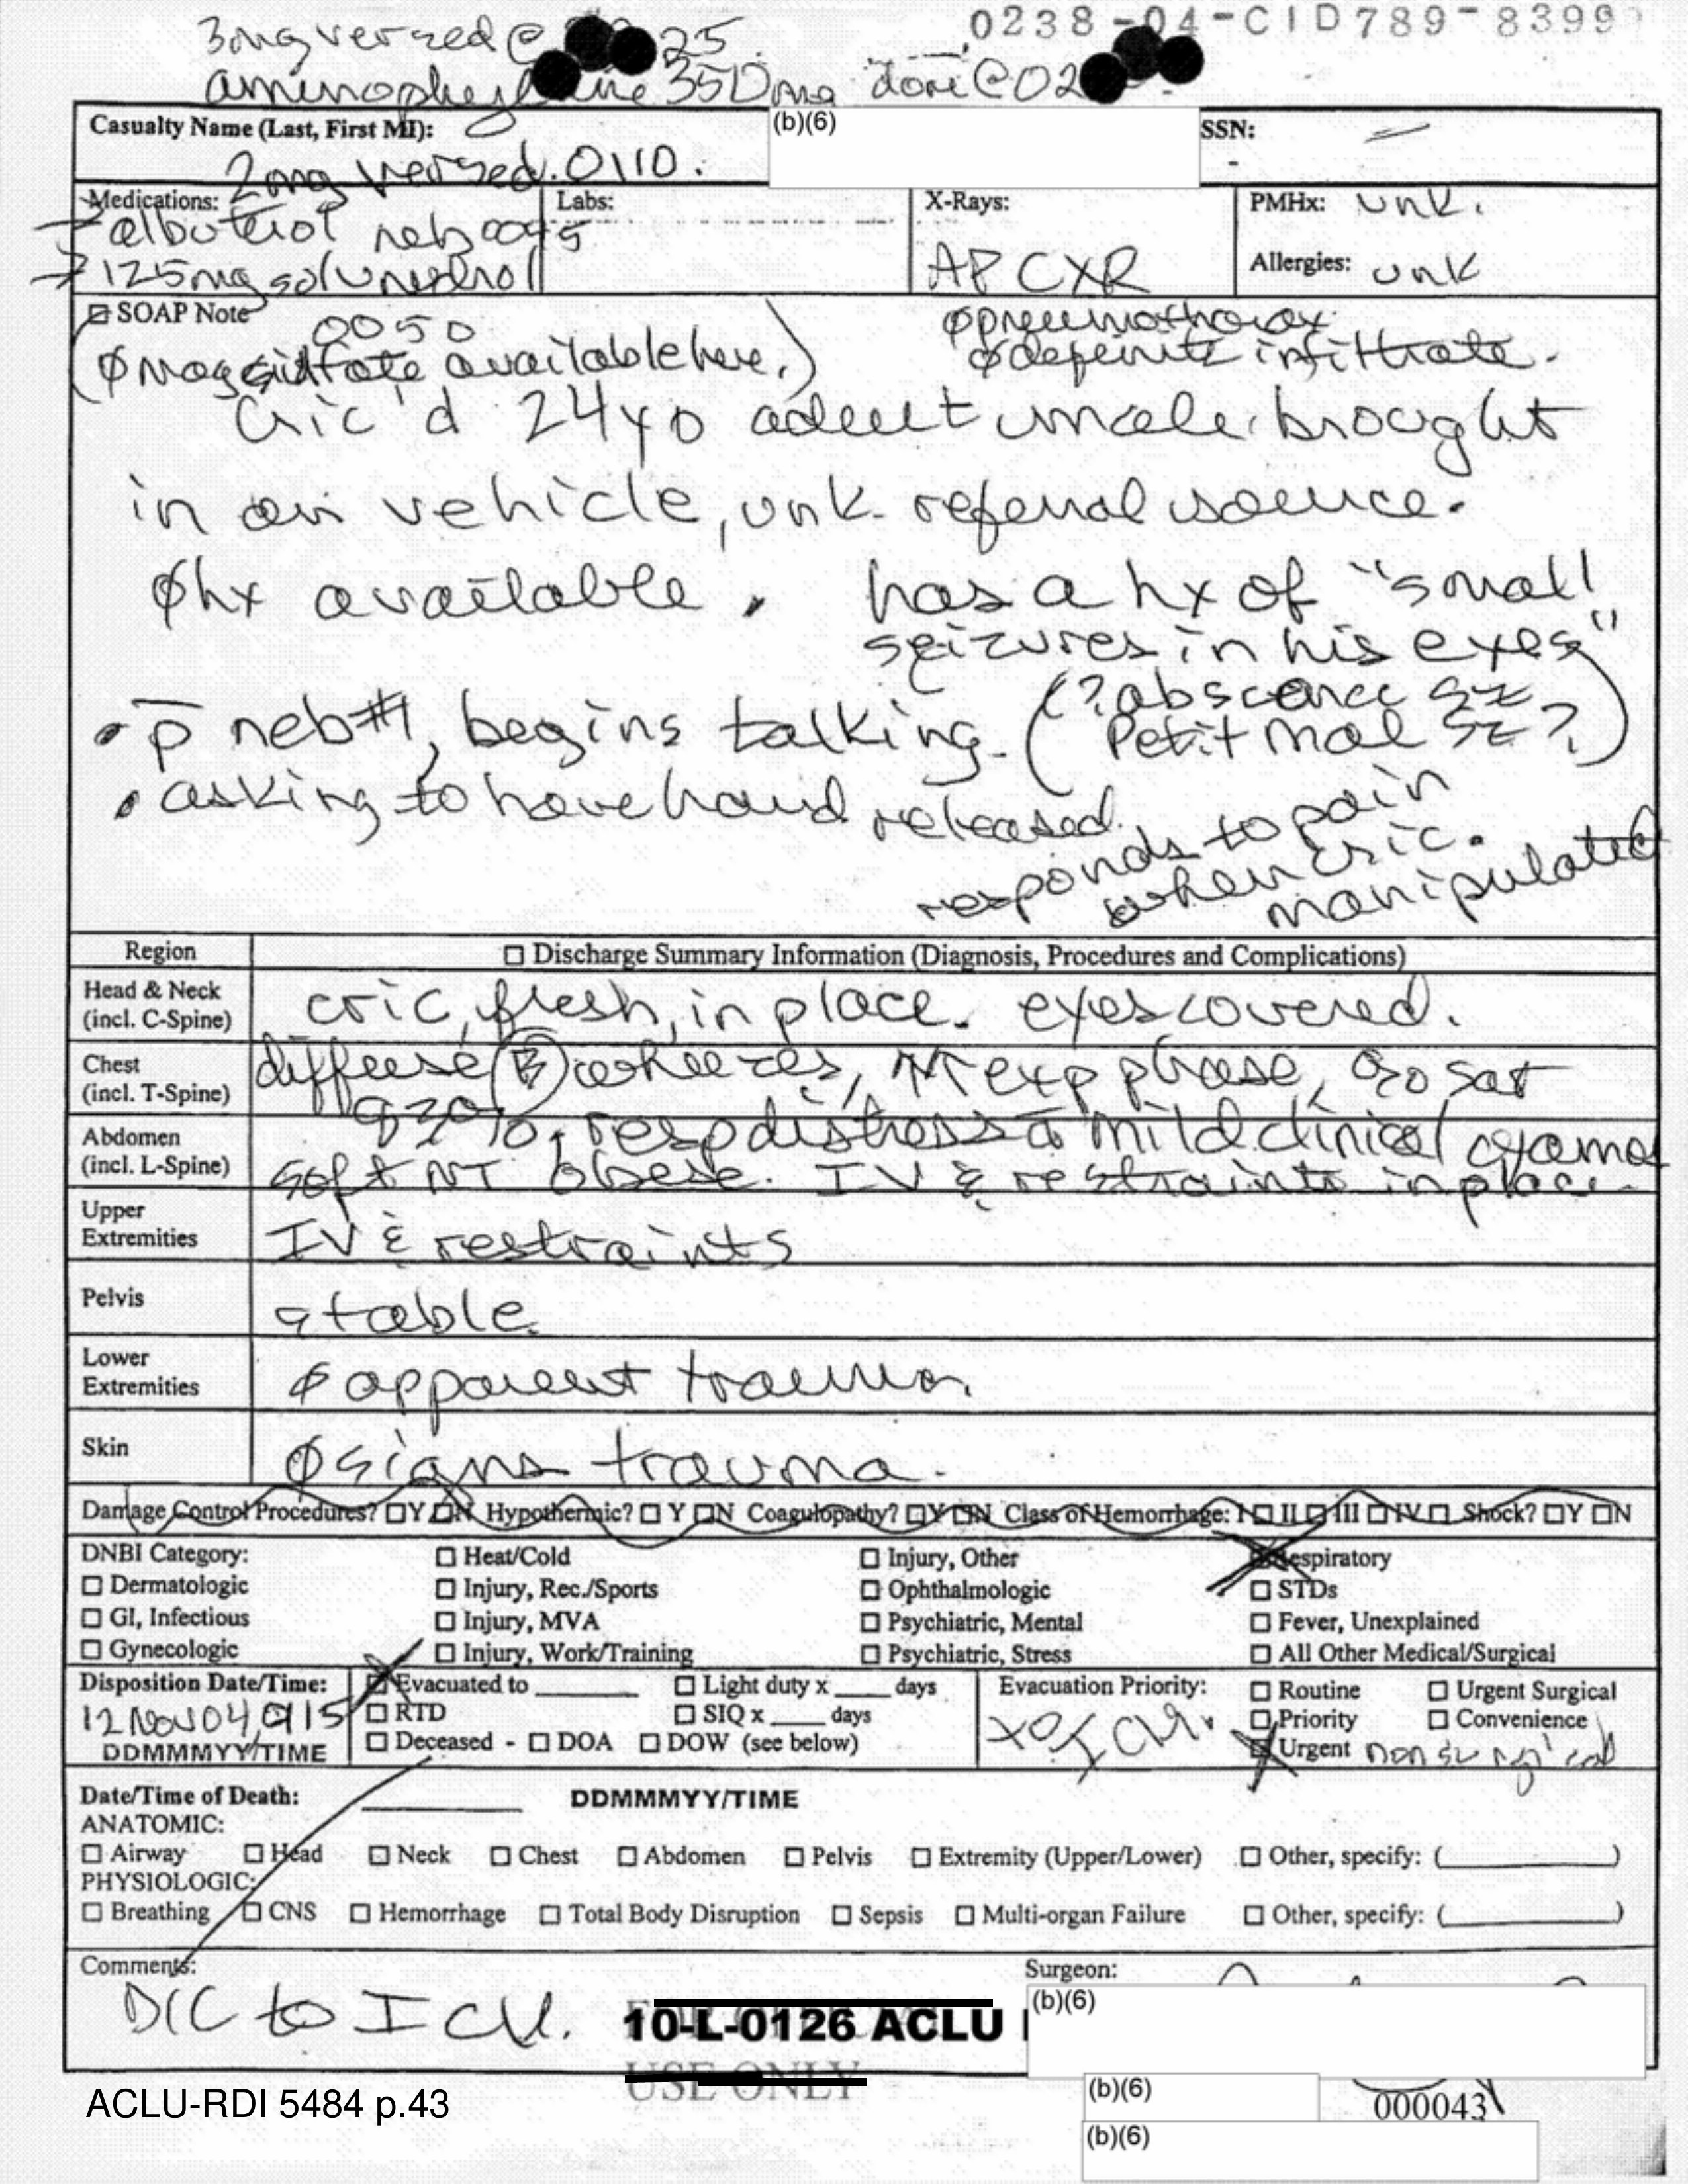 0238-04-CID789-8399
3mg versed @ 25
aminophylline 350mg done @ 02
Casualty Name (Last, First MI): (b)(6) SSN: -
2mg versed. 0110.
Medications: Labs: X-Rays: PMHx: unk.
→ albuterol neb 0045
→ 125mg solumedrol AP CXR Allergies: unk
SOAP Note 0050 Øpneumothorax
(Ø Mag sulfate available here.) Ødefinite infiltrate.
Cric'd 24yo adult male brought
in on vehicle, unk. referral source.
Øhx available. has a hx of "small
seizures in his eyes"
(?abscence sz
• p̄ neb#1, begins talking. Petit mal sz?)
• asking to have hand released.
responds to pain
when cric.
manipulated
Region ☐ Discharge Summary Information (Diagnosis, Procedures and Complications)
Head & Neck
(incl. C-Spine) cric, fresh, in place. eyes covered.
Chest
(incl. T-Spine) diffuse Ⓑ wheezes, ↑↑ exp phase, O2 sat
92%, resp distress c̄ mild clinical
Abdomen
(incl. L-Spine) soft NT obese. IV & restraints in place.
Upper
Extremities IV & restraints
Pelvis stable
Lower
Extremities Ø apparent trauma
Skin Øsigns trauma.
Damage Control Procedures? ☐Y ☐N Hypothermic? ☐ Y ☐N Coagulopathy? ☐Y ☐N Class of Hemorrhage: I☐ II☐ III ☐ IV☐ Shock? ☐Y ☐N
DNBI Category: ☐ Heat/Cold ☐ Injury, Other ☒ Respiratory
☐ Dermatologic ☐ Injury, Rec./Sports ☐ Ophthalmologic ☐ STDs
☐ GI, Infectious ☐ Injury, MVA ☐ Psychiatric, Mental ☐ Fever, Unexplained
☐ Gynecologic ☐ Injury, Work/Training ☐ Psychiatric, Stress ☐ All Other Medical/Surgical
Disposition Date/Time: ☒ Evacuated to ______ ☐ Light duty x ____ days Evacuation Priority: ☐ Routine ☐ Urgent Surgical
12Nov04, 0115 ☐ RTD ☐ SIQ x ____ days to ICU. ☐ Priority ☐ Convenience
DDMMMYY/TIME ☐ Deceased - ☐ DOA ☐ DOW (see below) ☒ Urgent non surgical
Date/Time of Death: ______ DDMMMYY/TIME
ANATOMIC:
☐ Airway ☐ Head ☐ Neck ☐ Chest ☐ Abdomen ☐ Pelvis ☐ Extremity (Upper/Lower) ☐ Other, specify: (______)
PHYSIOLOGIC:
☐ Breathing ☐ CNS ☐ Hemorrhage ☐ Total Body Disruption ☐ Sepsis ☐ Multi-organ Failure ☐ Other, specify: (______)
Comments: Surgeon:
D/C to ICU. 10-L-0126 ACLU (b)(6)
USE ONLY
ACLU-RDI 5484 p.43 (b)(6) 000043
(b)(6)